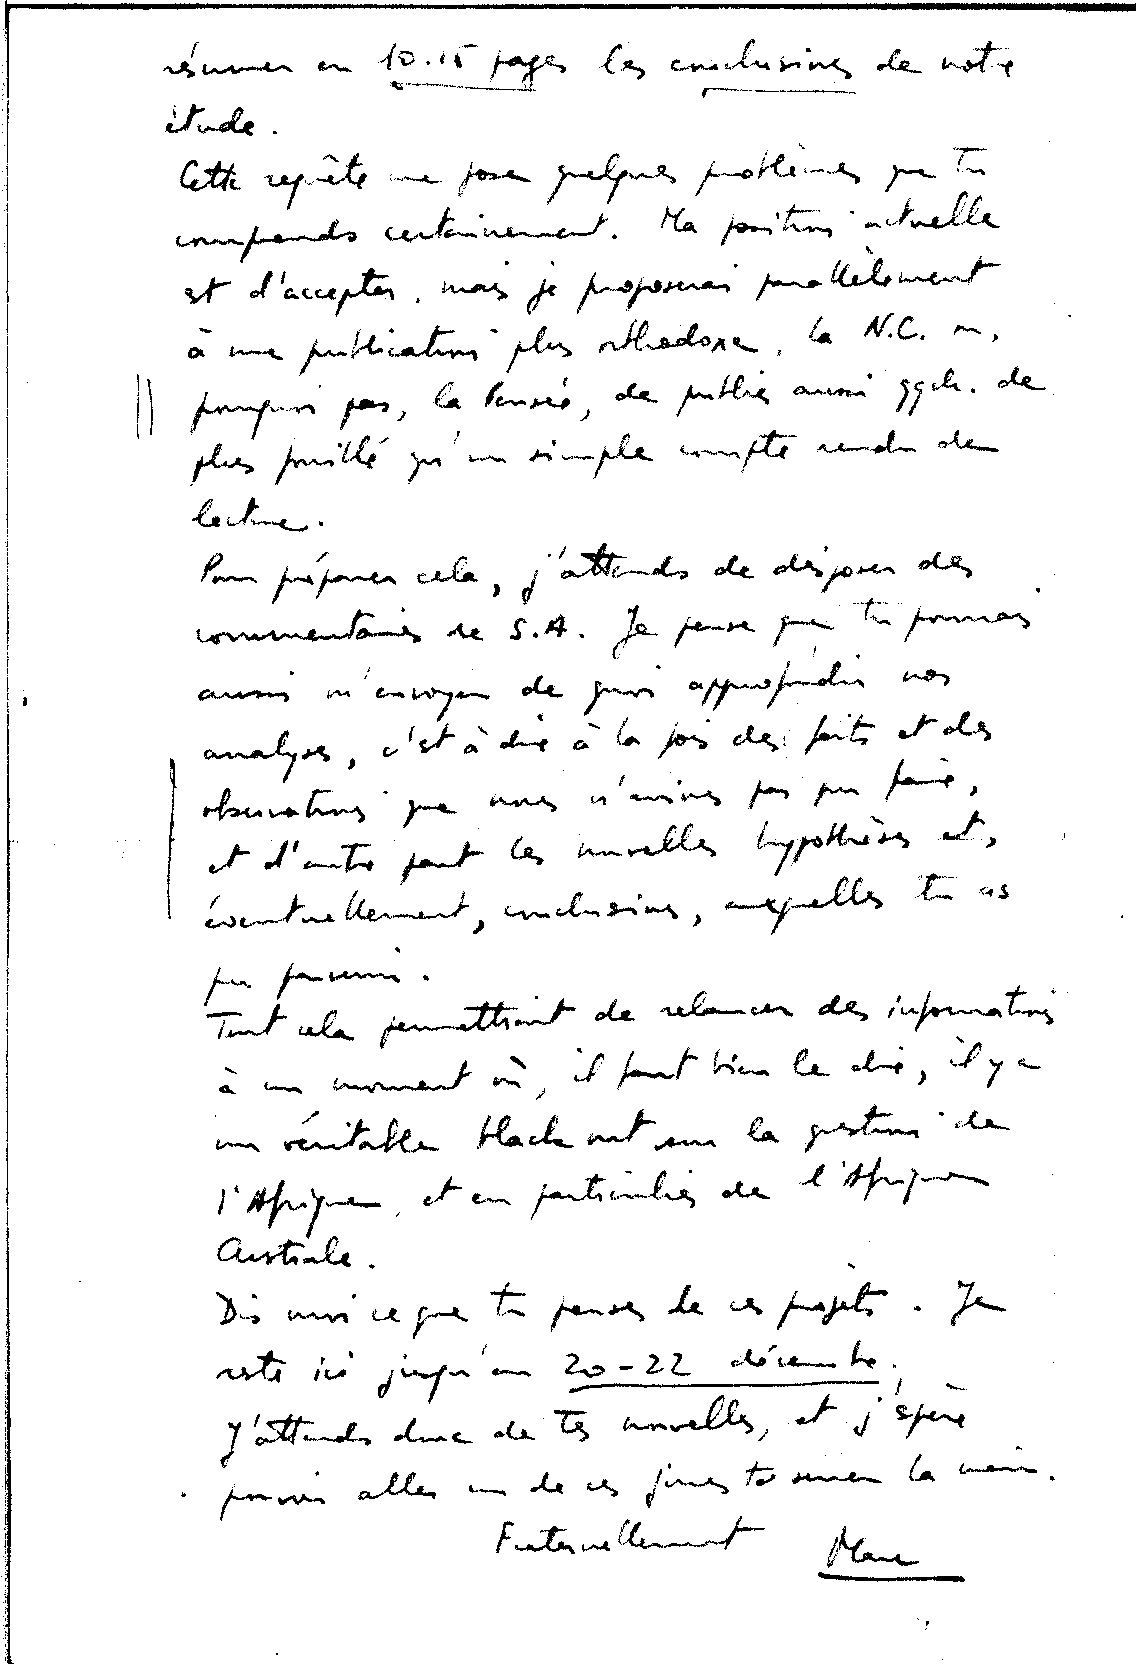 résumer en 10.15 pages les conclusions de notre
étude.
Cette requête me pose quelques problèmes que tu
comprends certainement. Ma position actuelle
est d'accepter, mais je proposerai parallèlement
à une publication plus orthodoxe, la N.C. ou,
pourquoi pas, la Pensée, de publier aussi qqch. de
plus fouillé qu'un simple compte rendu de
lecture.
Pour préparer cela, j'attends de disposer des
commentaires de S.A. Je pense que tu pourrais
aussi m'envoyer de quoi approfondir nos
analyses, c'est à dire à la fois des faits et des
observations que nous n'avions pas pu faire,
et d'autre part les nouvelles hypothèses et,
éventuellement, conclusions, auxquelles tu as
pu parvenir.
Tout cela permettrait de relancer des informations
à un moment où, il faut bien le dire, il y a
un véritable black out sur la question de
l'Afrique, et en particulier de l'Afrique
Australe.
Dis moi ce que tu penses de ces projets. Je
reste ici jusqu'au 20-22 décembre.
J'attends donc de tes nouvelles, et j'espère
pouvoir aller un de ces jours te serrer la main.
Fraternellement Marc